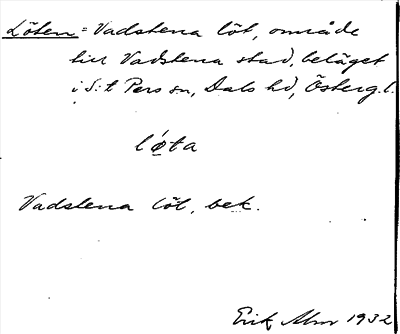 Löten = Vadstena löt, område
till Vadstena stad, beläget
i S:t Pers sn, Dals hd, Östergl.
løta
Vadstena löt, bek.
Erik Alm 1932